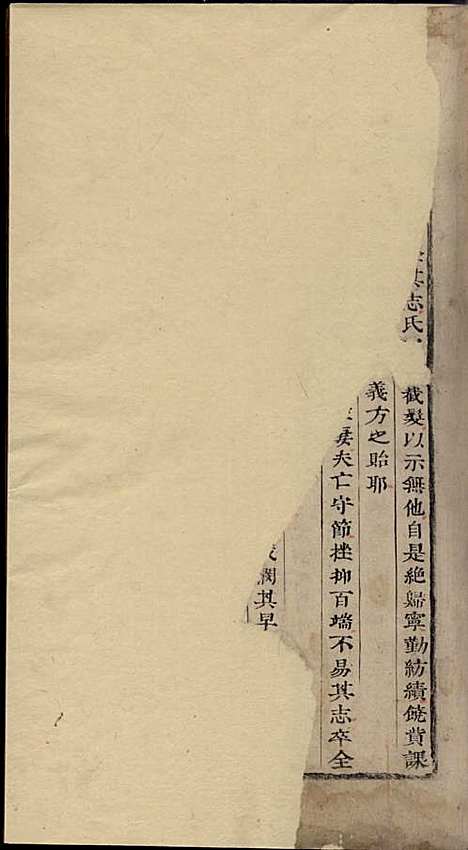 其志氏
截髮以示無他自是絶歸寧勤紡績饒貲課
義方之貽耶
妻夫亡守節挫抑百端不易其志卒全
潤其早